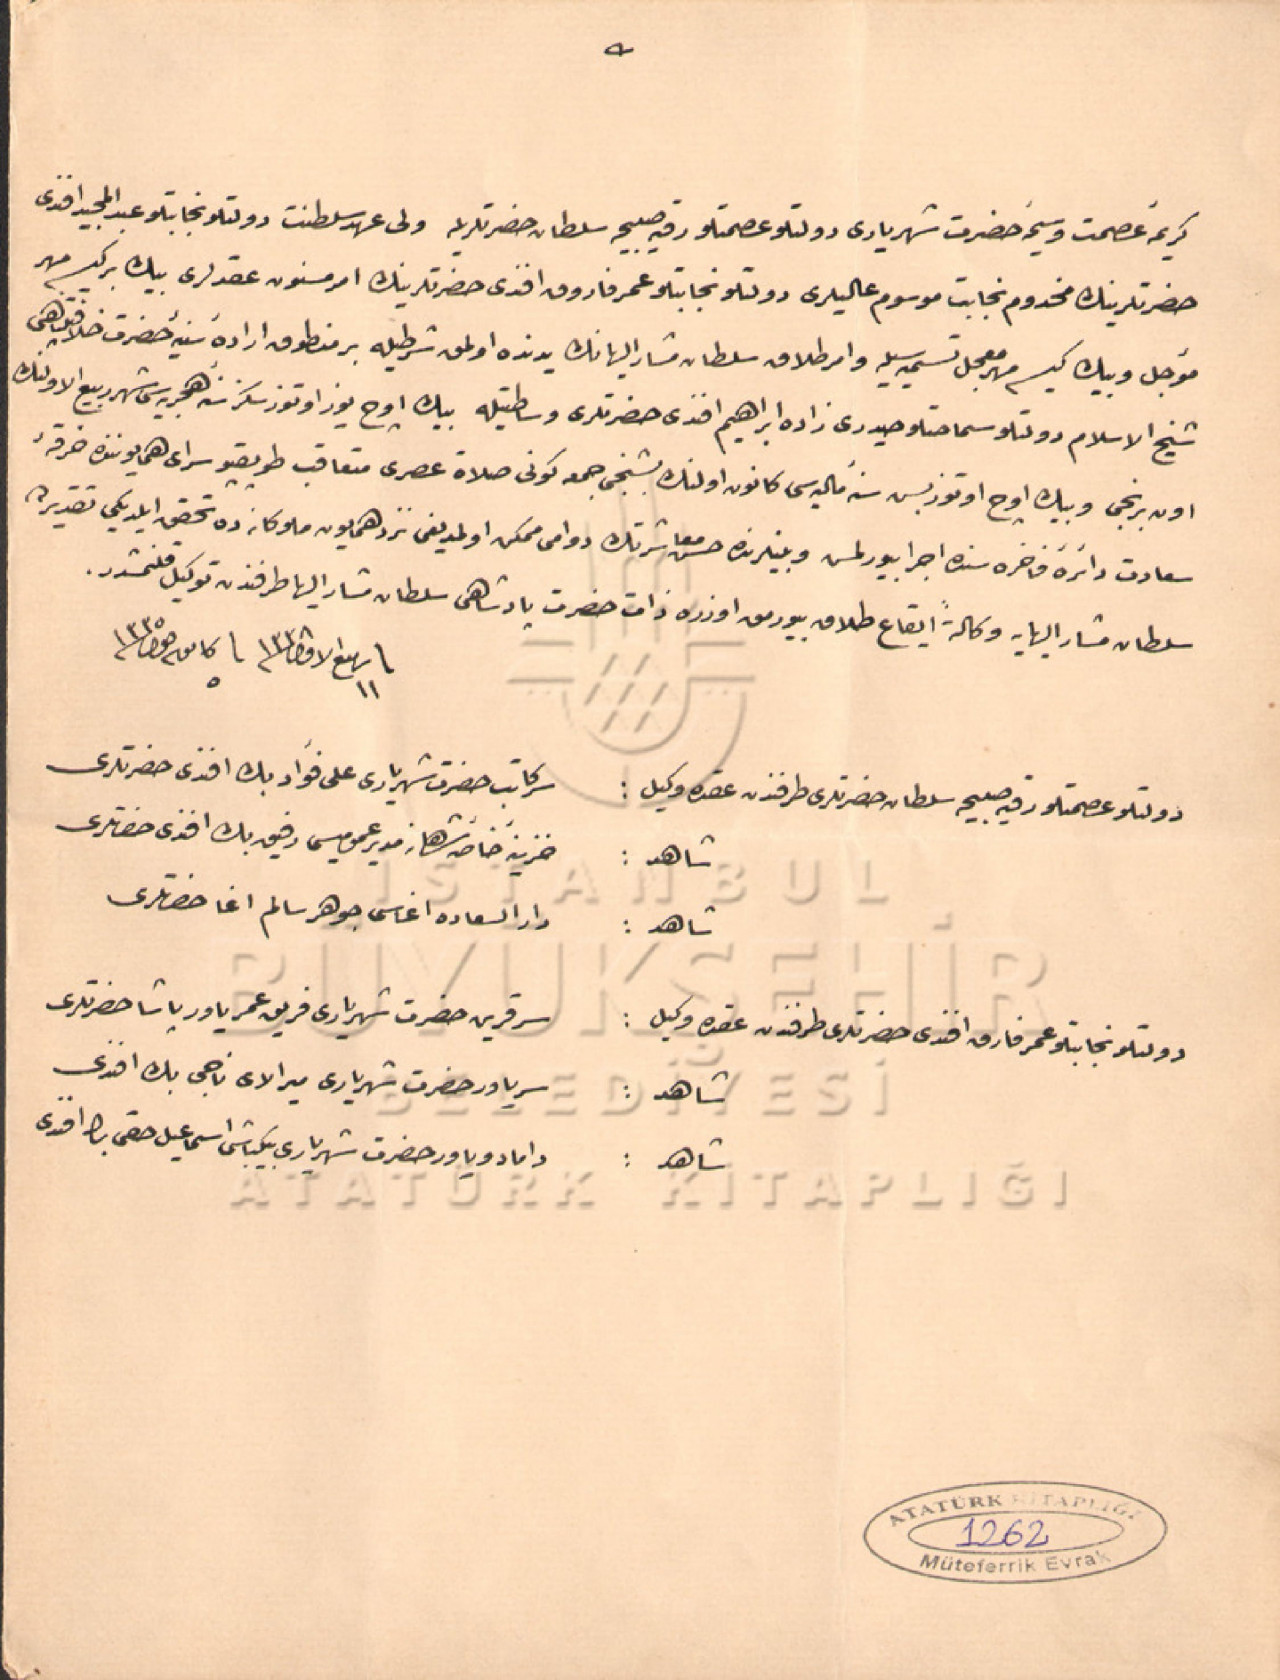 كريمهٔ عصمت وسيمهٔ حضرت شهرياری دولتلو عصمتلو رقيه صبيحه سلطان حضرتلريله ولی عهد سلطنت دولتلو نجابتلو عبد المجيد افندی
حضرتلرينك مخدوم نجابت موسوم عاليلری دولتلو نجابتلو عمر فاروق افندی حضرتلرينك امر مسنون عقدلری بيك بر كيسه مهر
مؤجل و بيك كيسه مهر معجل تسميه‌سيله و امر طلاق سلطان مشار اليهانك يدنده اولمق شرطيله بر منطوق ارادهٔ سنيهٔ حضرت خلافتپناهی
شيخ الاسلام دولتلو سماحتلو حيدری زاده ابراهيم افندی حضرتلری وساطتيله بيك اوچ يوز اوتوز سكز سنهٔ هجريه‌سی شهر ربيع الاولنك
اون برنجی و بيك اوچ اوتوز بش سنهٔ ماليه‌سی كانون اولنك بشنجی جمعه كونی صلاة عصری متعاقب طوپقپو سرای همايوننده خرقهٔ
سعادت دائرهٔ فاخره سنده اجرا بيورلمش و بينلرنده حسن معاشرتك دوامی ممكن اولمديغی نزد همايون ملوكانه‌ده تحقق ايلديكی تقديرده
سلطان مشار اليهايه وكالةً ايقاع طلاق بيورمق اوزره ذات حضرت پادشاهی سلطان مشار اليها طرفندن توكيل قلنمشدر .
١١ ربيع الاول ١٣٣٨ ٥ كانون اول ١٣٣٥
دولتلو عصمتلو رقيه صبيحه سلطان حضرتلری طرفندن عقده وكيل : سركاتب حضرت شهرياری علی فؤاد بك افندی حضرتلری
شاهد : خزينهٔ خاصهٔ شاهانه مدير عموميسی رفيق بك افندی حضرتلری
شاهد : دار السعاده اغاسی جوهر سالم اغا حضرتلری
دولتلو نجابتلو عمر فاروق افندی حضرتلری طرفندن عقده وكيل : سرقرين حضرت شهرياری فريق عمر ياور پاشا حضرتلری
شاهد : سرياور حضرت شهرياری ميرالای ناجی بك افندی
شاهد : داماد و ياور حضرت شهرياری بيكباشی اسماعيل حقی بك افندی
İSTANBUL
BÜYÜKŞEHİR
BELEDİYESİ
ATATÜRK KİTAPLIĞI
ATATÜRK KİTAPLIĞI
1262
Müteferrik Evrak